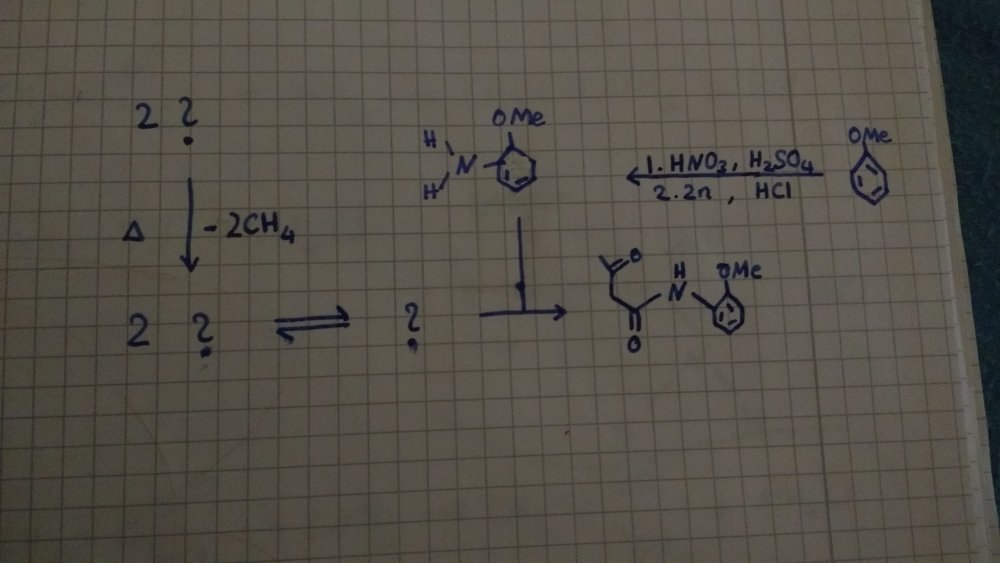 2 ?
Δ
-2CH4
2 ?
?
OMe
H
N
H
1. HNO3, H2SO4
2. Zn, HCl
OMe
O
H
N
OMe
O